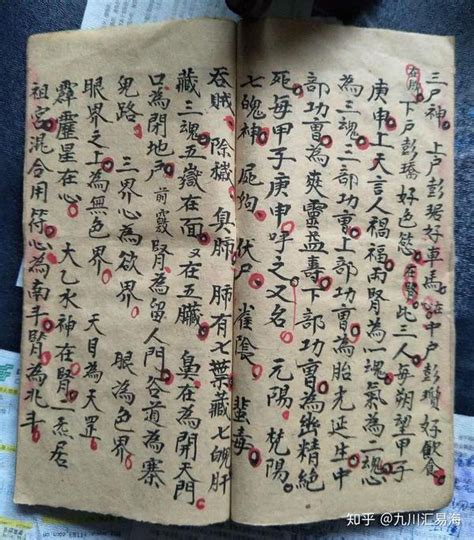 三尸神 上尸彭琚好車馬 中尸彭瓆好飲食
右腎 下尸彭琚好色慾 在腎 此三人每朔望甲子
庚申上天言人禍福 兩腎為一氣為二魂
為三魂 二部功曹上部功曹為胎光延生中
部功曹為爽靈益壽下部功曹為幽精絕
死每甲子庚申呼之又名 元陽 梵陽
七魄神 屍狗 伏尸 雀陰 蜚毒
吞賊 除穢 臭肺 肺有七葉藏七魄肝
藏三魂五嶽在面 又在五臟 鼻在為開天門
口為閉地戶 前竅腎為留人門谷道為寨
鬼路 三界心為欲界 眼為色界
眼界之上為無色界 天目為天罡
霹靂星在心 大乙水神在腎 一炁居
祖宮混合用符心為南斗腎為北斗
知乎 @九川汇易海